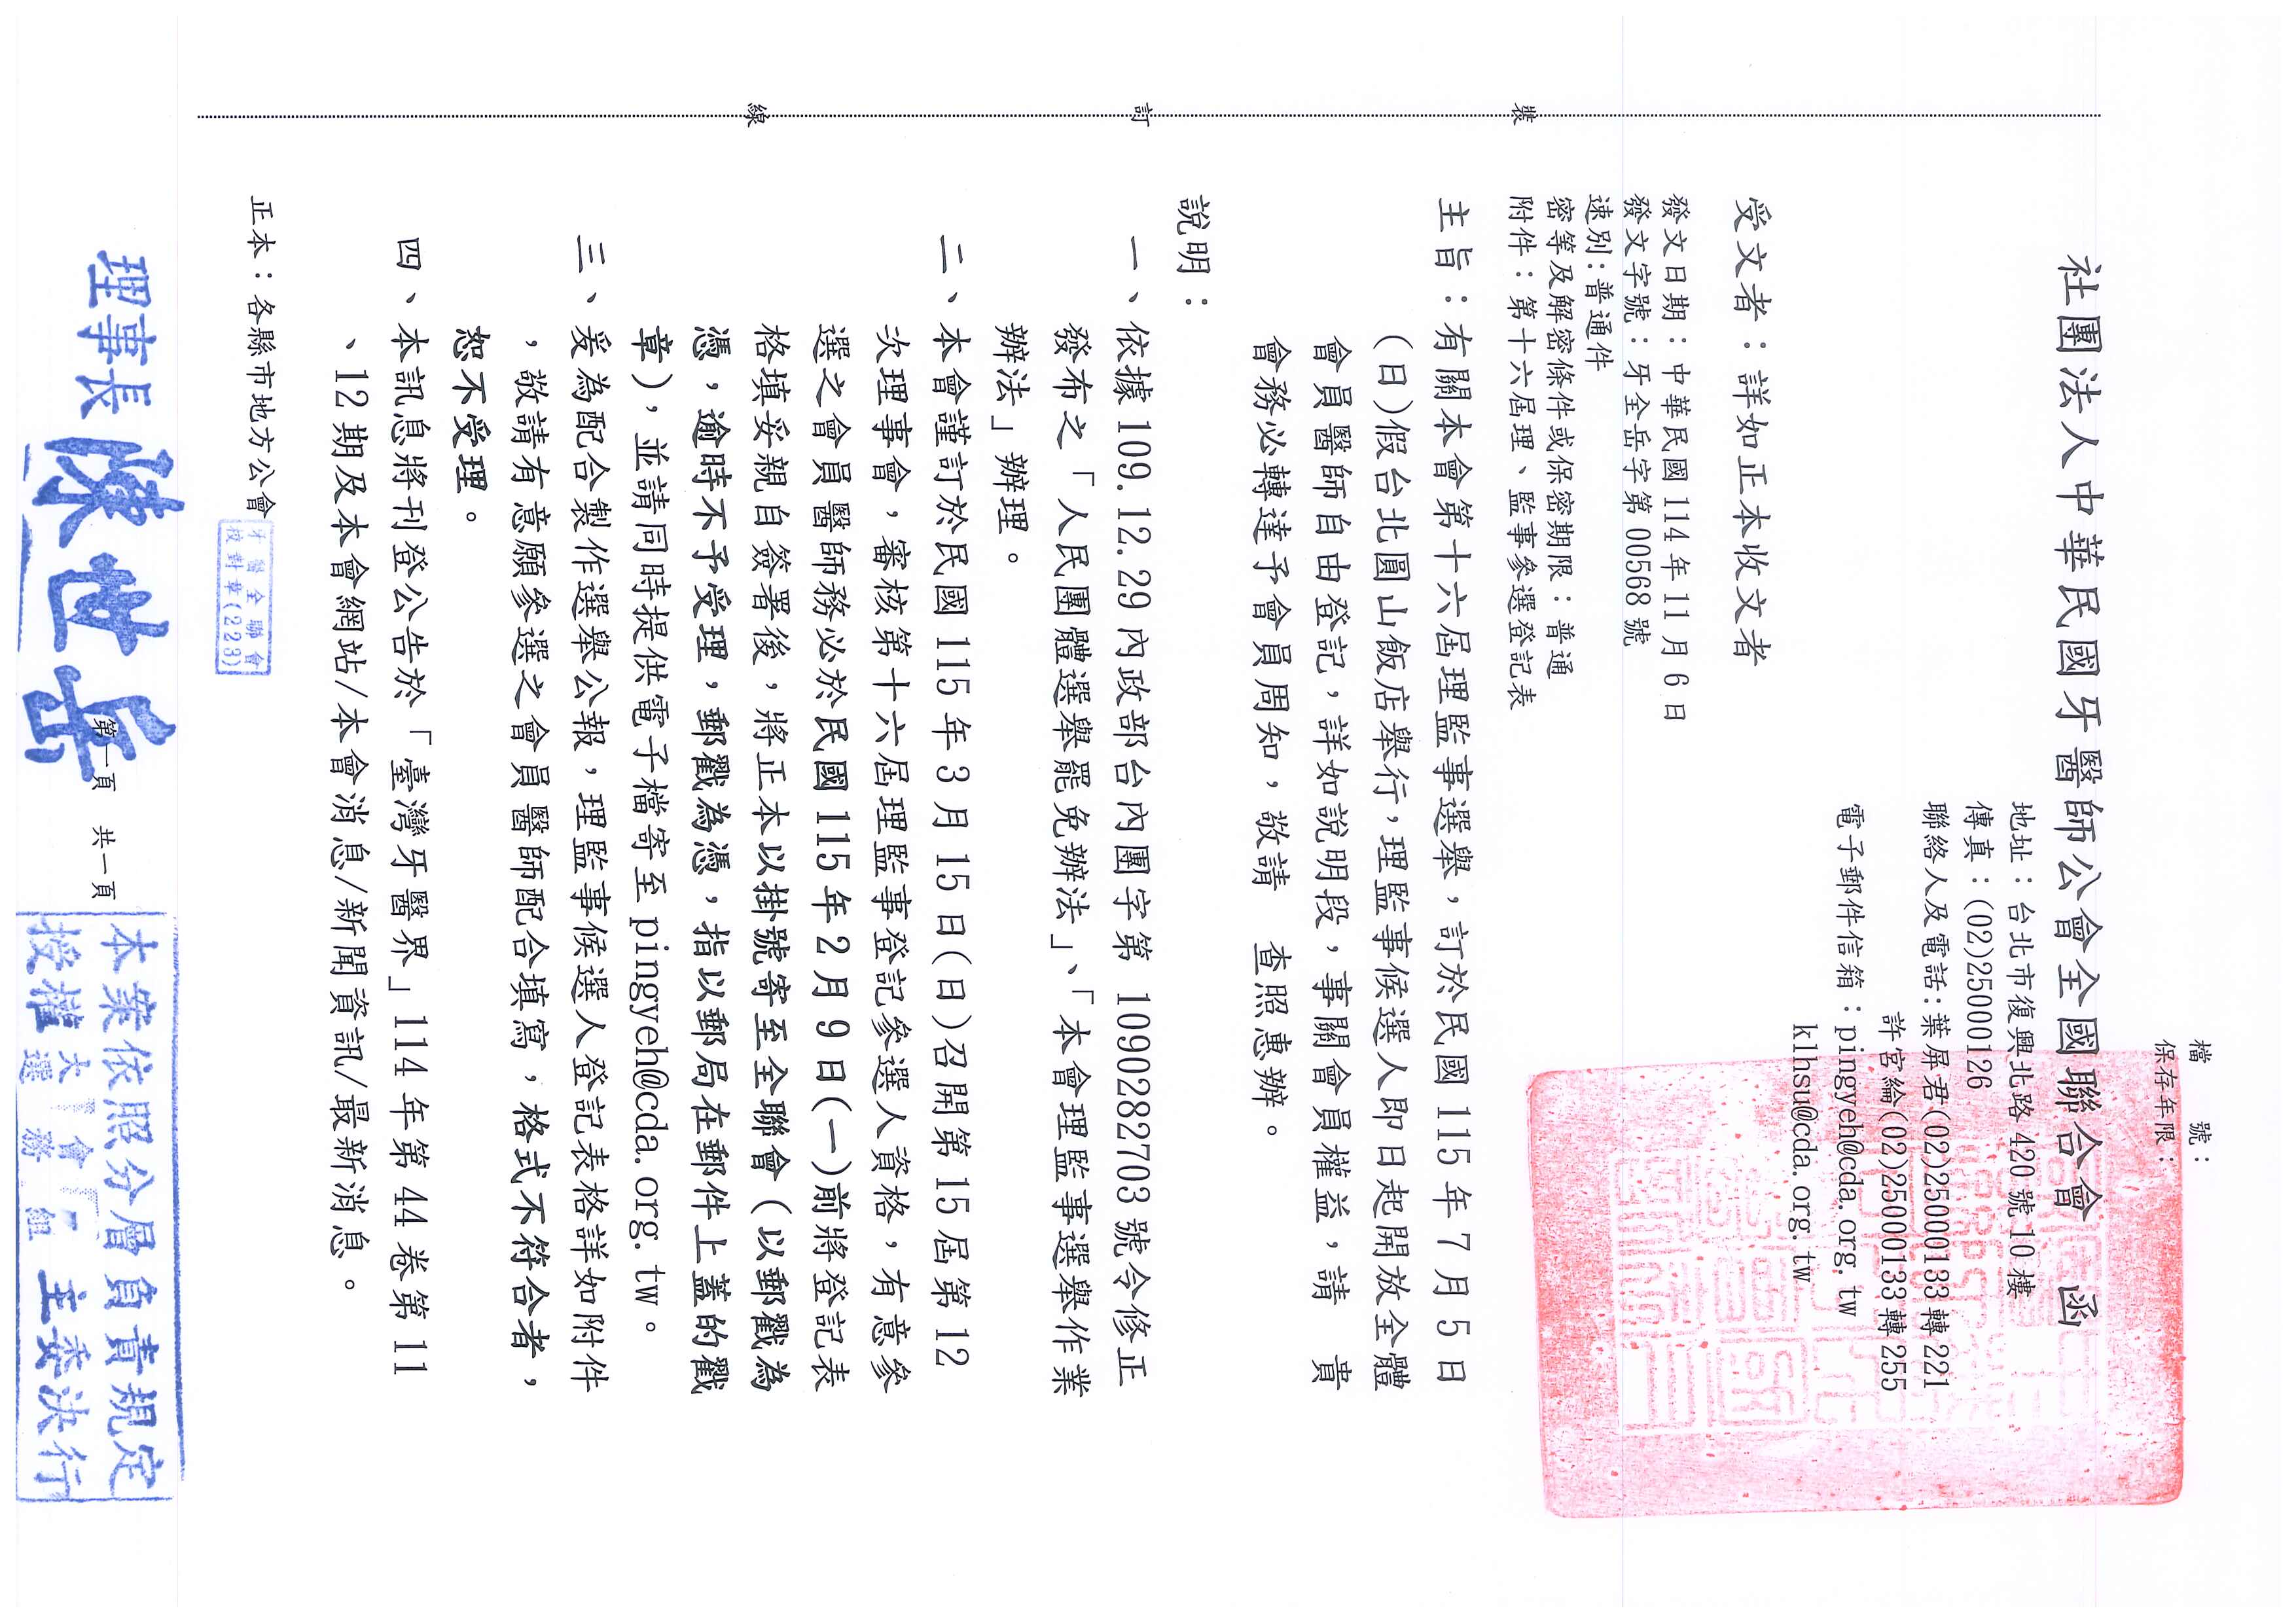 檔　　號：
保存年限：
社團法人中華民國牙醫師公會全國聯合會　函
地址：台北市復興北路420號10樓
傳真：(02)25000126
聯絡人及電話:葉屏君(02)25000133轉221
許宮綸(02)25000133轉255
電子郵件信箱：pingyeh@cda.org.tw
klhsu@cda.org.tw
受文者：詳如正本收文者
發文日期：中華民國114年11月6日
發文字號：牙全岳字第00568號
速別:普通件
密等及解密條件或保密期限：普通
附件：第十六屆理、監事參選登記表
主旨：有關本會第十六屆理監事選舉，訂於民國115年7月5日
(日)假台北圓山飯店舉行，理監事候選人即日起開放全體
會員醫師自由登記，詳如說明段，事關會員權益，請　貴
會務必轉達予會員周知，敬請　查照惠辦。
說明：
一、依據109.12.29內政部台內團字第 1090282703號令修正
發布之「人民團體選舉罷免辦法」、「本會理監事選舉作業
辦法」辦理。
二、本會謹訂於民國115年3月15日(日)召開第15屆第12
次理事會，審核第十六屆理監事登記參選人資格，有意參
選之會員醫師務必於民國115年2月9日(一)前將登記表
格填妥親自簽署後，將正本以掛號寄至全聯會（以郵戳為
憑，逾時不予受理，郵戳為憑，指以郵局在郵件上蓋的戳
章），並請同時提供電子檔寄至pingyeh@cda.org.tw。
三、爰為配合製作選舉公報，理監事候選人登記表格詳如附件
，敬請有意願參選之會員醫師配合填寫，格式不符合者，
恕不受理。
四、本訊息將刊登公告於「臺灣牙醫界」114年第44卷第11
、12期及本會網站/本會消息/新聞資訊/最新消息。
正本：各縣市地方公會
牙醫全聯會
校對章(223)
理事長 陳世岳
第一頁　共一頁
本案依照分層負責規定
授權 主委決行
裝
訂
線